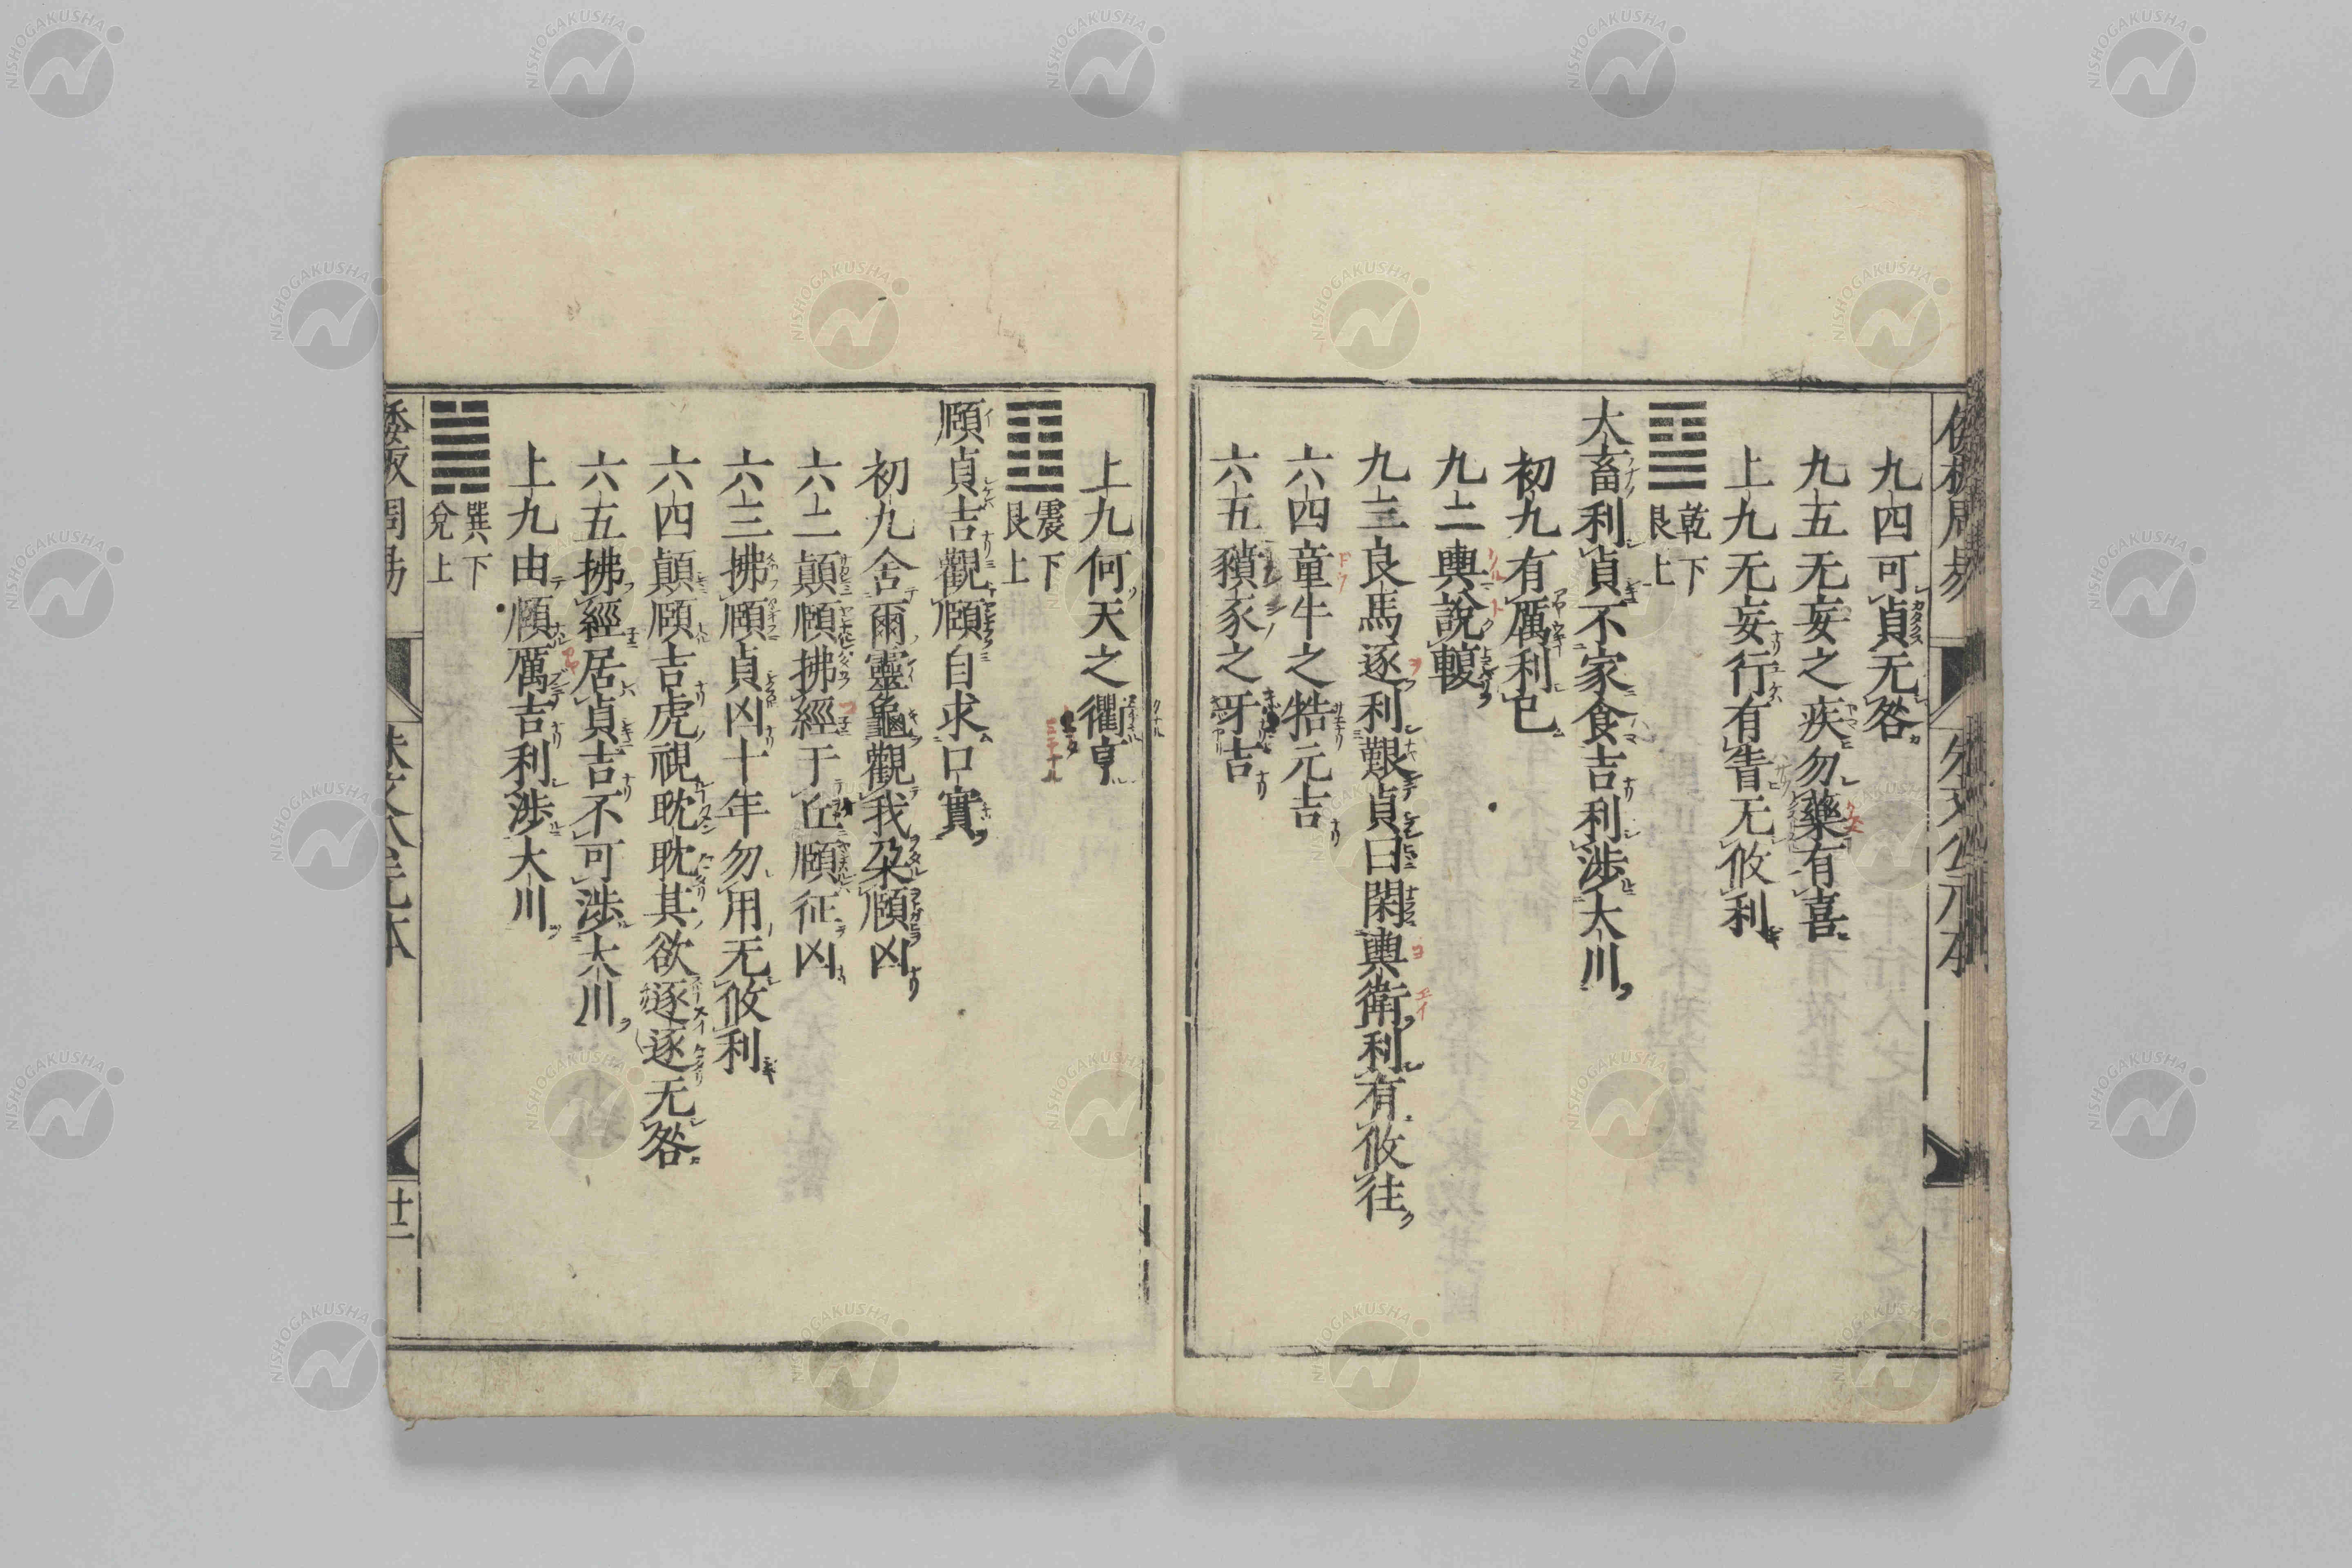 九四可貞无咎
九五无妄之疾勿藥有喜
上九无妄行有眚无攸利
乾下
艮上
大畜利貞不家食吉利涉大川
初九有厲利已
九二輿說輹
九三良馬逐利艱貞曰閑輿衛利有攸往
六四童牛之牿元吉
六五豶豕之牙吉
上九何天之衢亨
震下
艮上
頤貞吉觀頤自求口實
初九舍爾靈龜觀我朶頤凶
六二顛頤拂經于丘頤征凶
六三拂頤貞凶十年勿用无攸利
六四顛頤吉虎視耽耽其欲逐逐无咎
六五拂經居貞吉不可涉大川
上九由頤厲吉利涉大川
巽下
兌上
倭板周易
朱文公元本
廿二
NISHOGAKUSHA